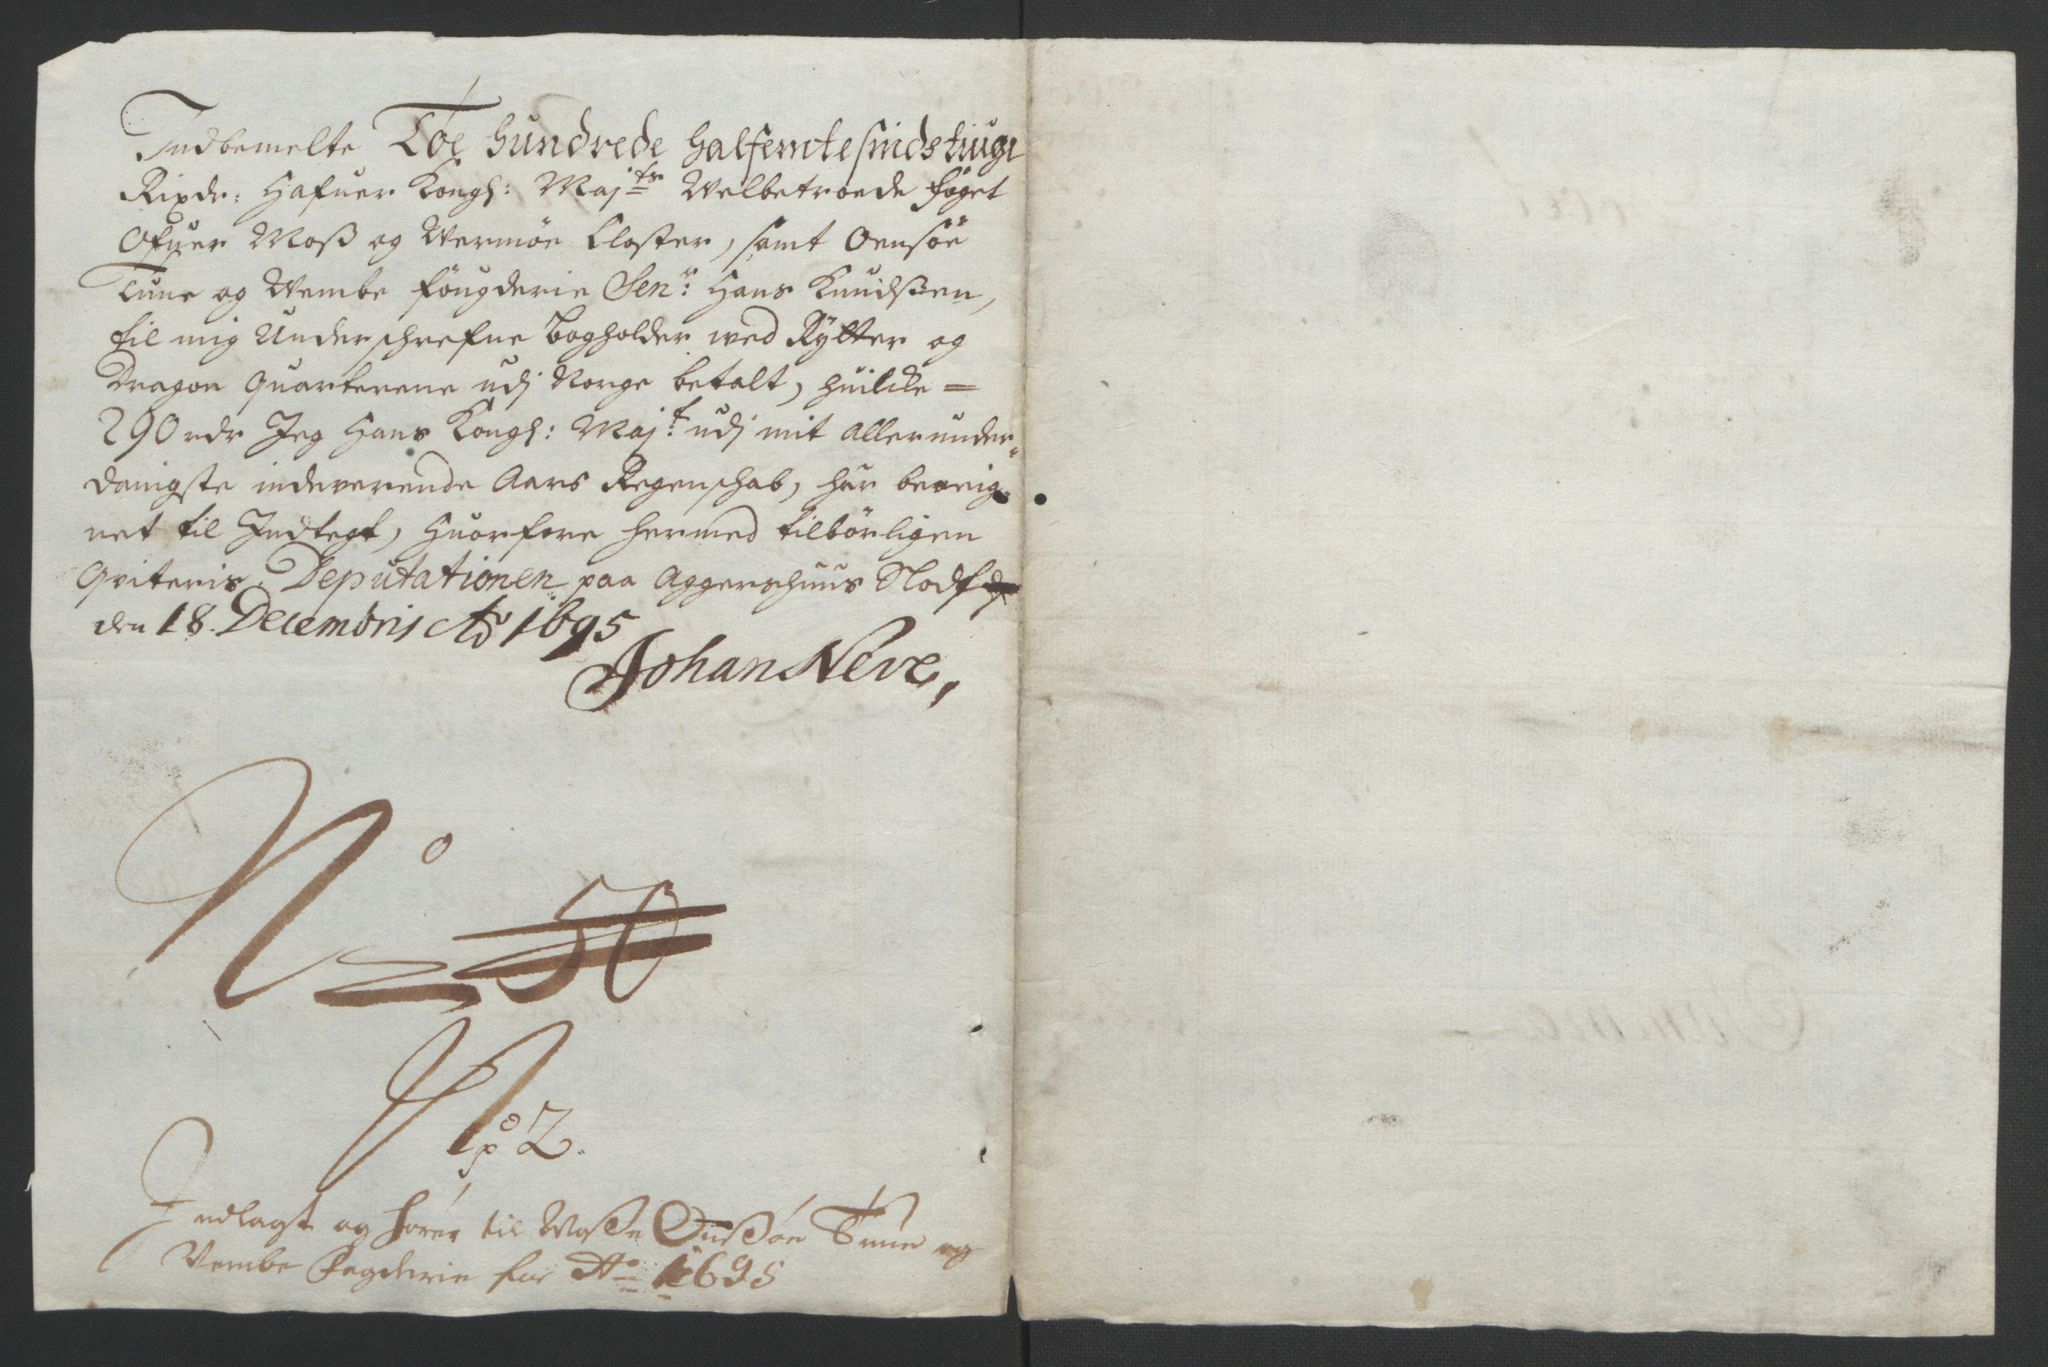 Indbemelte Toe hundrede halfemtesindstiuge
Rixdr: Hafuer Kongl: Maj:ts Velbetroede foget
Ofuer Moss og Wermöe Closter, samt Oensöe
Tune og Wembe fougderie Sen.r: Hans Knudssen,
til mig Underschrefne bogholder wed Rytter og
Dragon Quarterene udj Norge betalt, huilcke =
290 rdr Jeg Hans Kongl: Maj.t: udj mit allerunder-
danigste indeverende Aars Regenschab, har bereig-
net til Indtegt, Huorfore hermed tilbörligen
Qviteris. Deputationen paa Aggershuus Slodt
den 18. Decembris Ao 1695
Johan Neve,
No 2 50
No 2.
Indlagt og hörer til Mosse Onssöe Tune og
Vembe Fogderie for Ao 1695